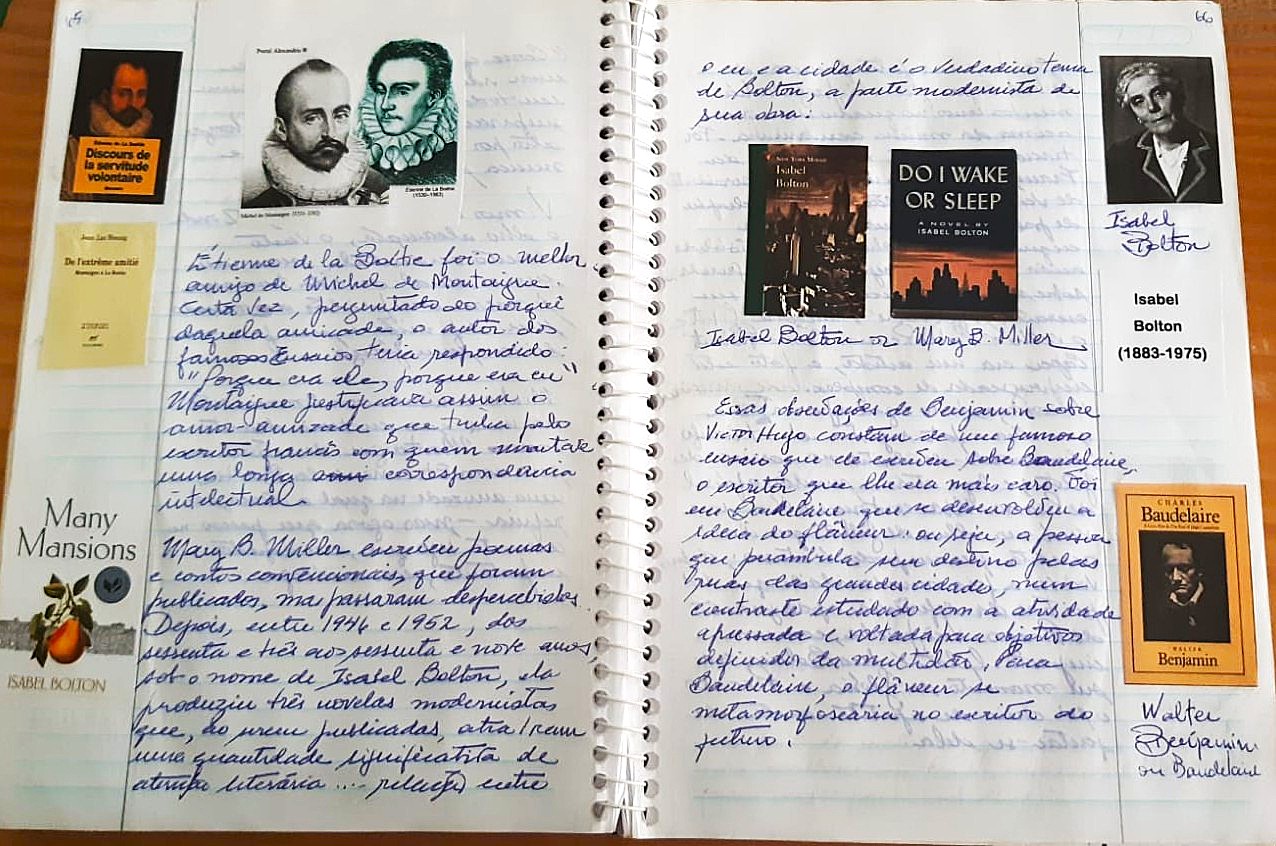 65
Étienne de La Boétie
Discours de
la servitude
volontaire
Portal Alexandria ®
Étienne de La Boétie
(1530-1563)
Michel de Montaigne (1533-1592)
Jean-Luc Hennig
De l'extrême amitié
Montaigne & La Boétie
nrf
Étienne de la Boétie foi o melhor
amigo de Michel de Montaigne.
Certa vez, perguntado do porquê
daquela amizade, o autor dos
famosos Ensaios teria respondido:
"Porque era ele, porque era eu"
Montaigne justificava assim o
amor-amizade que tinha pelo
escritor francês com quem manteve
uma longa correspondência
intelectual.
Many
Mansions
ISABEL BOLTON
Mary B. Miller escreveu poemas
e contos convencionais, que foram
publicados, mas passaram despercebidos.
Depois, entre 1946 e 1952, dos
sessenta e três aos sessenta e nove anos,
sob o nome de Isabel Bolton, ela
produziu três novelas modernistas
que, ao serem publicadas, atraíram
uma quantidade significativa de
atenção literária .... relação entre
66
o eu e a cidade é o verdadeiro tema
de Bolton, a parte modernista de
sua obra.
New York Mosaic
Isabel
Bolton
DO I WAKE
OR SLEEP
A NOVEL BY
ISABEL BOLTON
Isabel Bolton or Mary B. Miller
Isabel
Bolton
Isabel
Bolton
(1883-1975)
Essas observações de Benjamin sobre
Victor Hugo constam de um famoso
ensaio que ele escreveu sobre Baudelaire,
o escritor que lhe era mais caro. Foi
em Baudelaire que se desenvolveu a
ideia do flâneur: ou seja, a pessoa
que perambula sem destino pelas
ruas das grandes cidade, num
contraste estudado com a atividade
apressada e voltada para objetivos
definidos da multidão. Para
Baudelaire, o flâneur se
metamorfosearia no escritor do
futuro.
CHARLES
Baudelaire
WALTER
Benjamin
Walter
Benjamin
on Baudelaire